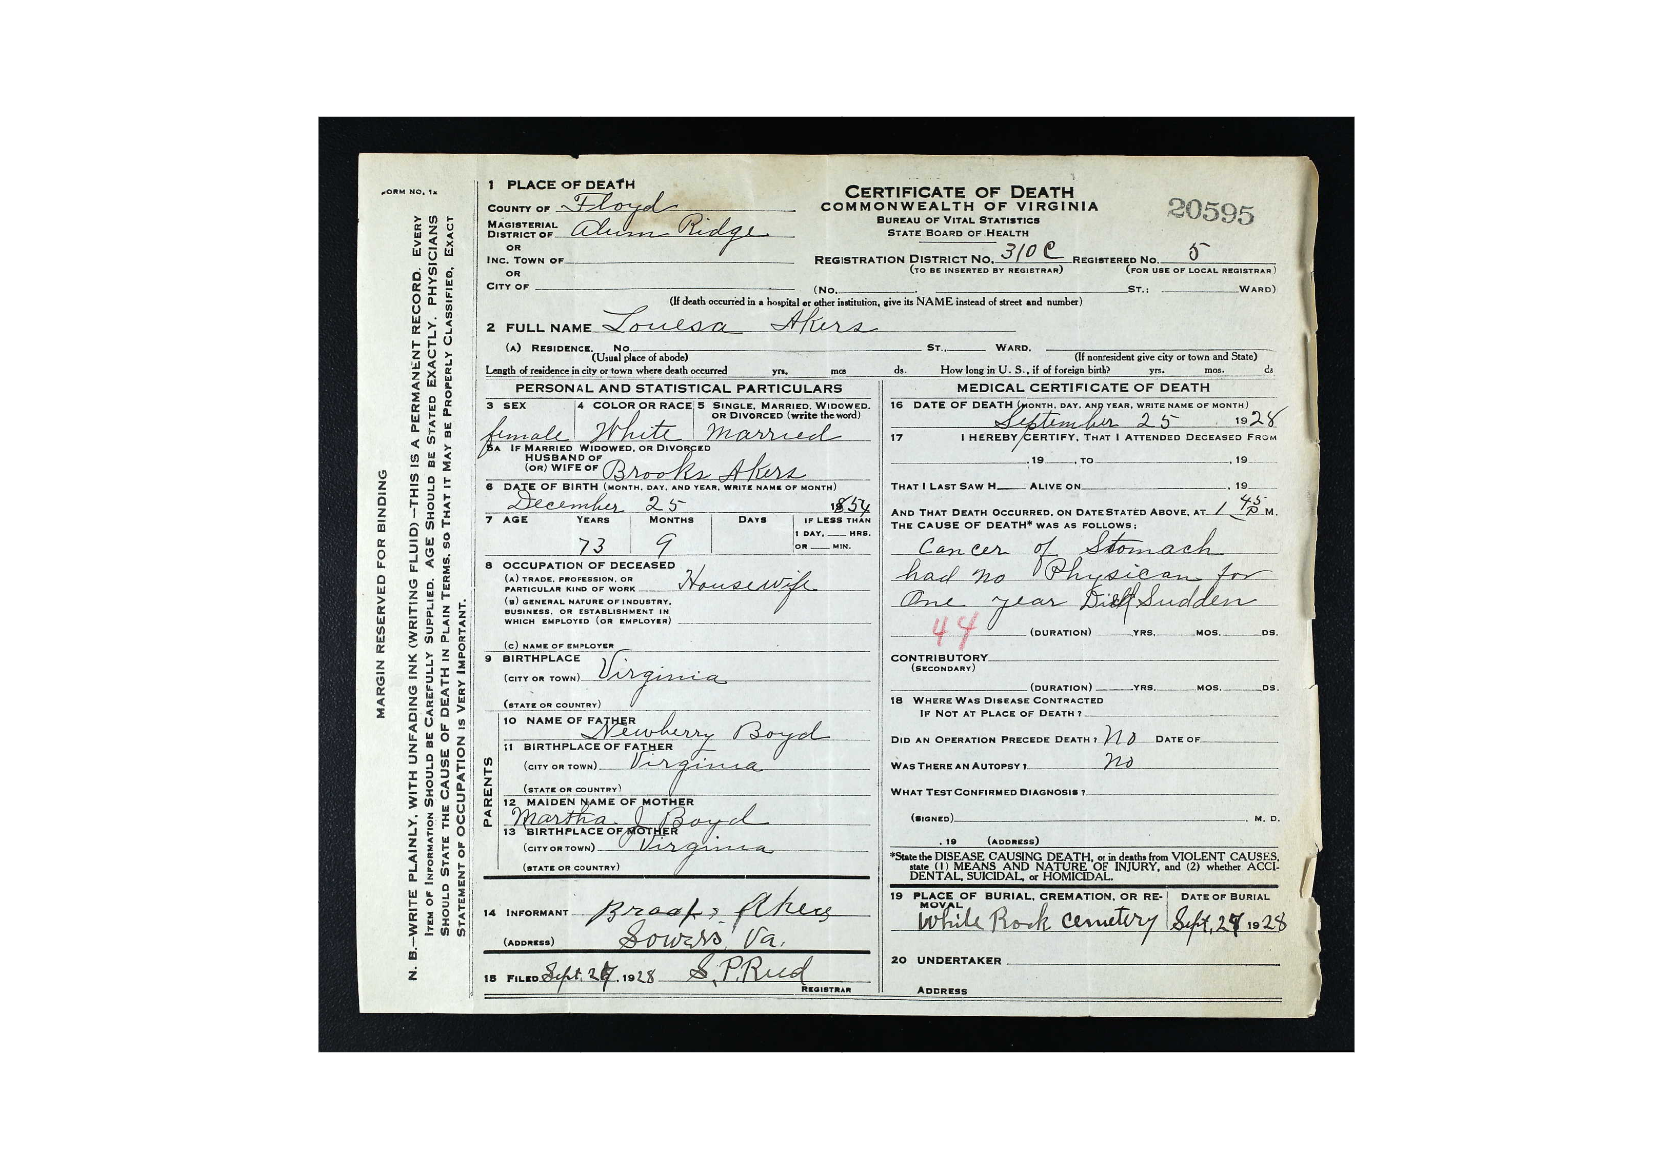 FORM NO. 1x
MARGIN RESERVED FOR BINDING
N. B.—WRITE PLAINLY, WITH UNFADING INK (WRITING FLUID)—THIS IS A PERMANENT RECORD. EVERY
ITEM OF INFORMATION SHOULD BE CAREFULLY SUPPLIED. AGE SHOULD BE STATED EXACTLY. PHYSICIANS
SHOULD STATE THE CAUSE OF DEATH IN PLAIN TERMS, SO THAT IT MAY BE PROPERLY CLASSIFIED. EXACT
STATEMENT OF OCCUPATION IS VERY IMPORTANT.
1 PLACE OF DEATH
COUNTY OF Floyd
MAGISTERIAL
DISTRICT OF Alum Ridge
OR
INC. TOWN OF
OR
CITY OF
CERTIFICATE OF DEATH
COMMONWEALTH OF VIRGINIA
BUREAU OF VITAL STATISTICS
STATE BOARD OF HEALTH
20595
REGISTRATION DISTRICT NO. 310C REGISTERED NO. 5
(TO BE INSERTED BY REGISTRAR) (FOR USE OF LOCAL REGISTRAR)
(No. ST.; WARD)
(If death occurred in a hospital or other institution, give its NAME instead of street and number)
2 FULL NAME Louesa Akers
(A) RESIDENCE. NO. ST., WARD.
(Usual place of abode) (If nonresident give city or town and State)
Length of residence in city or town where death occurred yrs. mos ds. How long in U. S., if of foreign birth? yrs. mos. ds
PERSONAL AND STATISTICAL PARTICULARS
3 SEX 4 COLOR OR RACE 5 SINGLE, MARRIED, WIDOWED,
OR DIVORCED (write the word)
female White Married
5A IF MARRIED WIDOWED, OR DIVORCED
HUSBAND OF
(OR) WIFE OF Brooks Akers
6 DATE OF BIRTH (MONTH, DAY, AND YEAR, WRITE NAME OF MONTH)
December 25 1854
7 AGE YEARS MONTHS DAYS IF LESS THAN
1 DAY, HRS.
73 9 OR MIN.
8 OCCUPATION OF DECEASED
(A) TRADE, PROFESSION, OR
PARTICULAR KIND OF WORK Housewife
(B) GENERAL NATURE OF INDUSTRY,
BUSINESS, OR ESTABLISHMENT IN
WHICH EMPLOYED (OR EMPLOYER)
(C) NAME OF EMPLOYER
9 BIRTHPLACE
(CITY OR TOWN) Virginia
(STATE OR COUNTRY)
PARENTS
10 NAME OF FATHER
Newberry Boyd
11 BIRTHPLACE OF FATHER
(CITY OR TOWN) Virginia
(STATE OR COUNTRY)
12 MAIDEN NAME OF MOTHER
Martha J Boyd
13 BIRTHPLACE OF MOTHER
(CITY OR TOWN) Virginia
(STATE OR COUNTRY)
14 INFORMANT Brooks Akers
(ADDRESS) Sowers, Va.
15 FILED Sept. 27, 1928 S. P. Reed
REGISTRAR
MEDICAL CERTIFICATE OF DEATH
16 DATE OF DEATH (MONTH, DAY, AND YEAR, WRITE NAME OF MONTH)
September 25 1928
17 I HEREBY CERTIFY, THAT I ATTENDED DECEASED FROM
, 19 , TO , 19
THAT I LAST SAW H ALIVE ON , 19
AND THAT DEATH OCCURRED, ON DATE STATED ABOVE, AT 1 45 P M.
THE CAUSE OF DEATH* WAS AS FOLLOWS:
Cancer of Stomach
had no Physican for
One year Died Sudden
44 (DURATION) YRS. MOS. DS.
CONTRIBUTORY
(SECONDARY)
(DURATION) YRS. MOS. DS.
18 WHERE WAS DISEASE CONTRACTED
IF NOT AT PLACE OF DEATH?
DID AN OPERATION PRECEDE DEATH? No DATE OF
WAS THERE AN AUTOPSY? no
WHAT TEST CONFIRMED DIAGNOSIS?
(SIGNED) M. D.
, 19 (ADDRESS)
*State the DISEASE CAUSING DEATH, or in deaths from VIOLENT CAUSES,
state (1) MEANS AND NATURE OF INJURY, and (2) whether ACCI-
DENTAL, SUICIDAL, or HOMICIDAL.
19 PLACE OF BURIAL, CREMATION, OR RE- DATE OF BURIAL
MOVAL
White Rock cemetery Sept, 27 1928
20 UNDERTAKER
ADDRESS